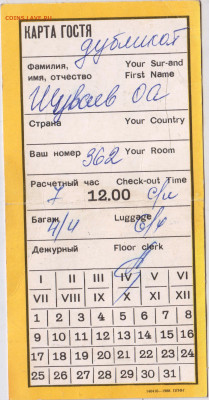 COINS.SU
КАРТА ГОСТЯ
дубликат
Фамилия, Your Sur-and
имя, отчество First Name
Шуваев ОА
Страна Your Country
Ваш номер 362 Your Room
Расчетный час Check-out Time
7 12.00 с/л
Багаж Luggage
ч/ч с/ч
Дежурный Floor clerk
I II III IV V VI
VII VIII IX X XI XII
1 2 3 4 5 6 7 8
9 10 11 12 13 14 15 16
17 18 19 20 21 22 23 24
25 26 27 28 29 30 31